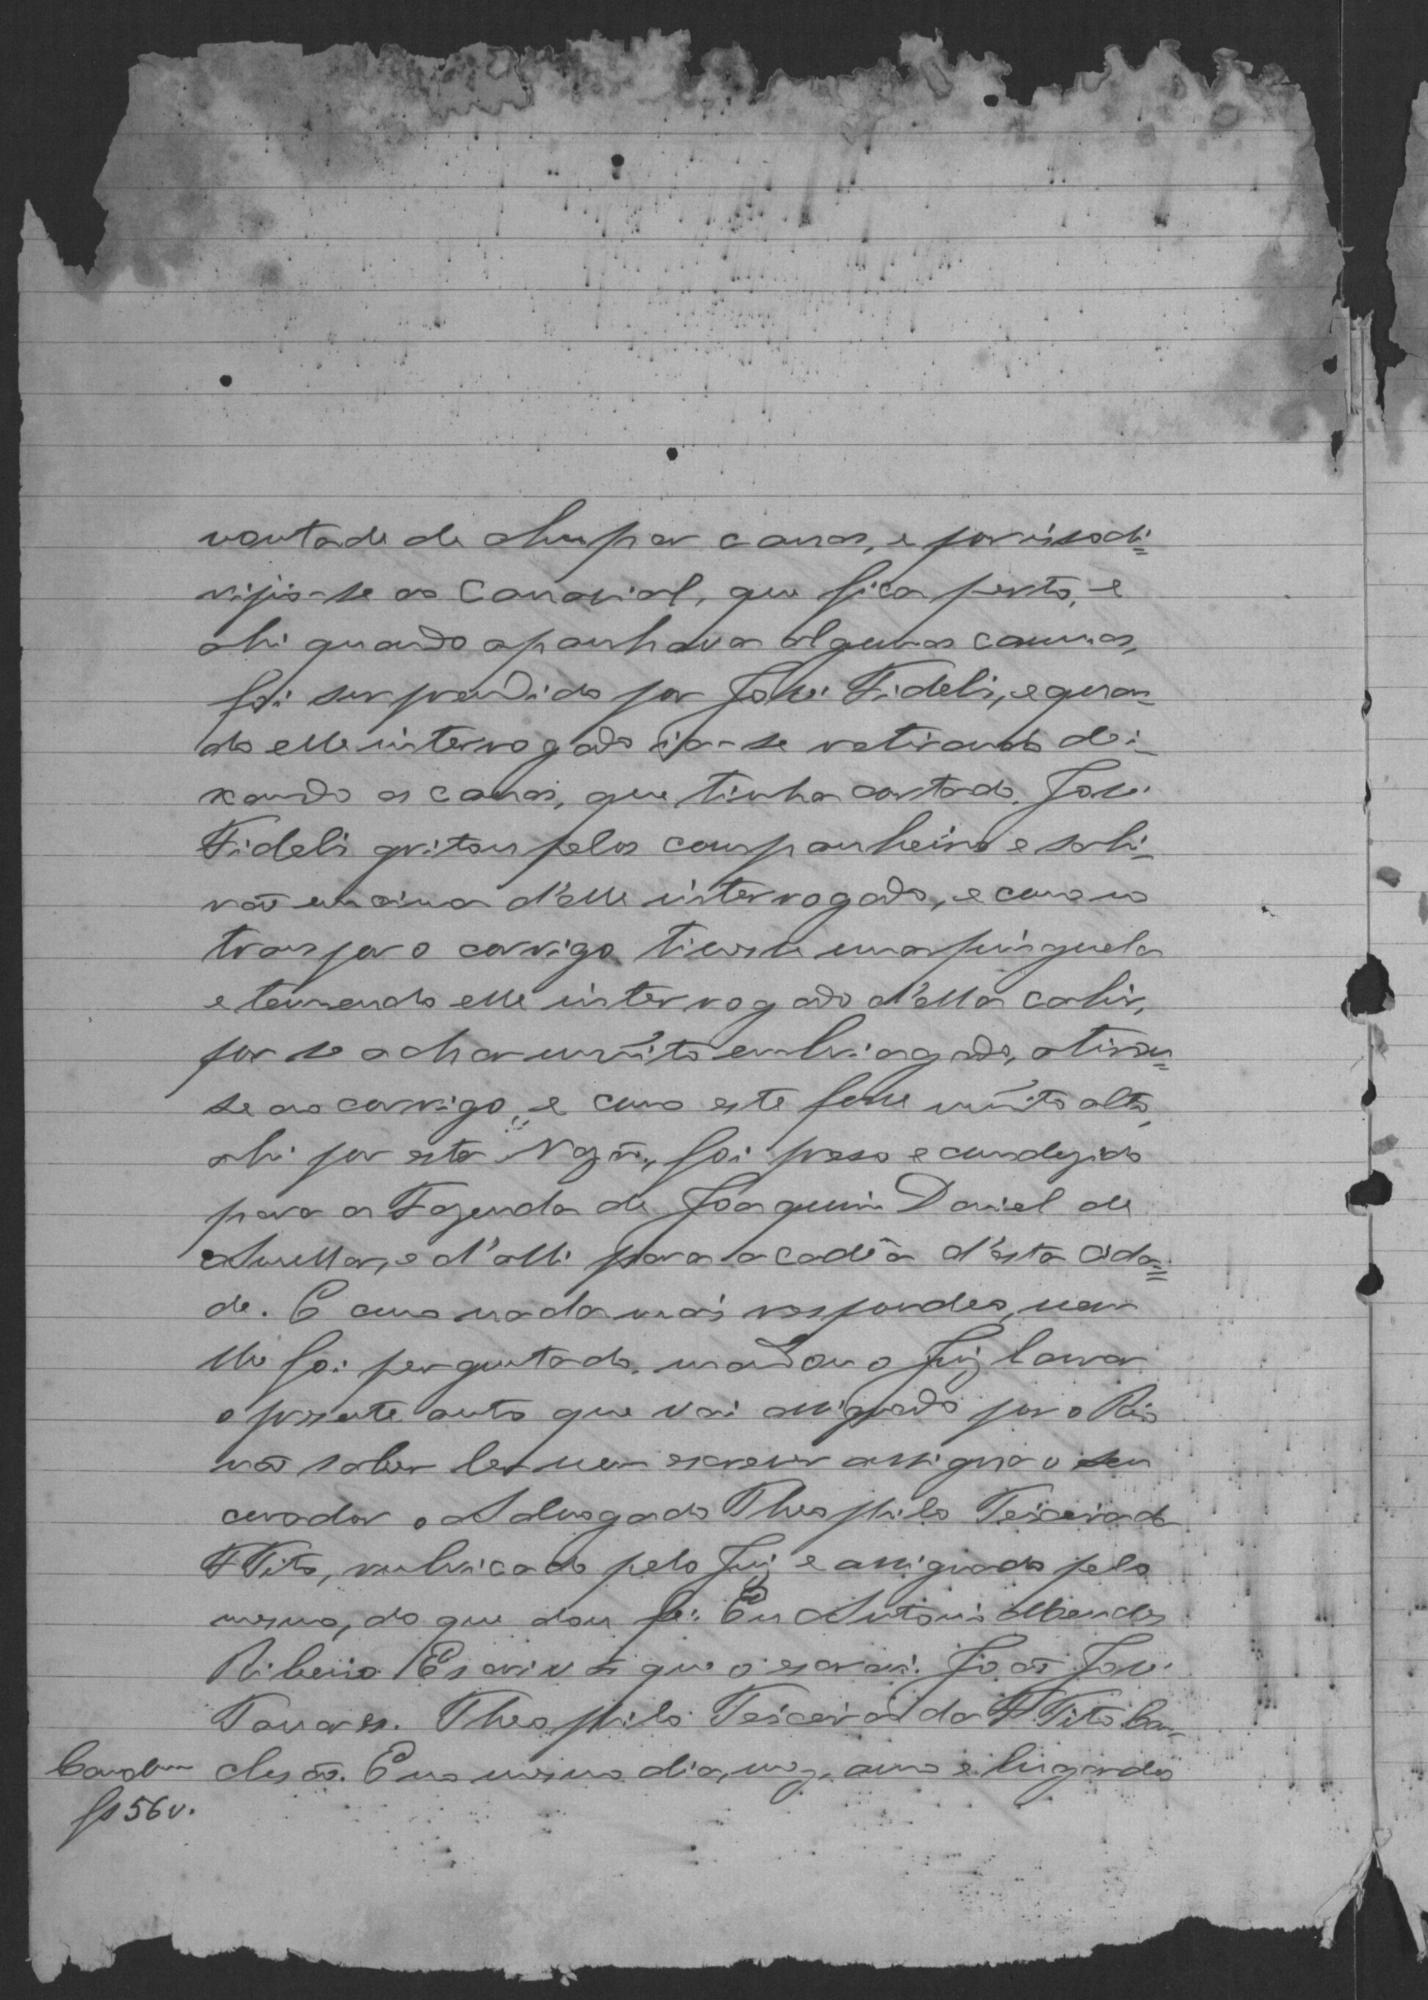 vontade de chupar canas, e por isso di=
rijio-se ao Canavial, que fica perto, e
ahi quando apanhava algumas cannas,
foi surprendido por José Fideli, e quan-
do elle interrogado ia-se retirando dei-
xando as canas, que tinha cortado. José
Fideli gritou pelos companheiros e sahi-
rão em cima d'elle interrogado, e como no
transpor o corrigo tivesse uma pinguela
e temendo elle interrogado d'ella cahir,
por se achar muito embriagado, atirou=
se ao corrigo, e como este fosse muito alto,
ahi por esta rasão, foi preso e condusido
para a Fazenda de Joaquim Daniel de
e d'alli para a cadêa d'esta cida=
de. E como nada mais respondeo, nem
lhe foi perguntado, mandou o Juiz lavrar
o presente auto que vai assignado por o Réo
não saber ler nem escrever assigna o seu
curador o Advogado Theophilo Teixeira da
Tito, rubricado pelo Juiz e assignado pelo
mesmo, do que dou fé: Eu Antonio Mendes
Ribeiro Escrivão que o escrevi. João José
Tavares. Theophilo Teixeira da Tito Con-
clusão. E no mesmo dia, mez, anno e lugar do
Conclusam
fs 56 v.